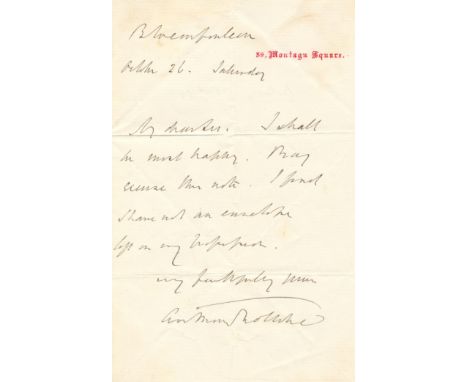 Bloemfontein
39, Montagu Square.
October 26. Saturday
My dear Sir. I shall
be most happy. Pray
excuse this note. I find
I have not an envelope
left in my
very faithfully yours
Anthony Trollope